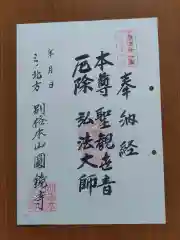 奉納経
本尊聖観世音
厄除弘法大師
年月日
別格本山圓鏡寺